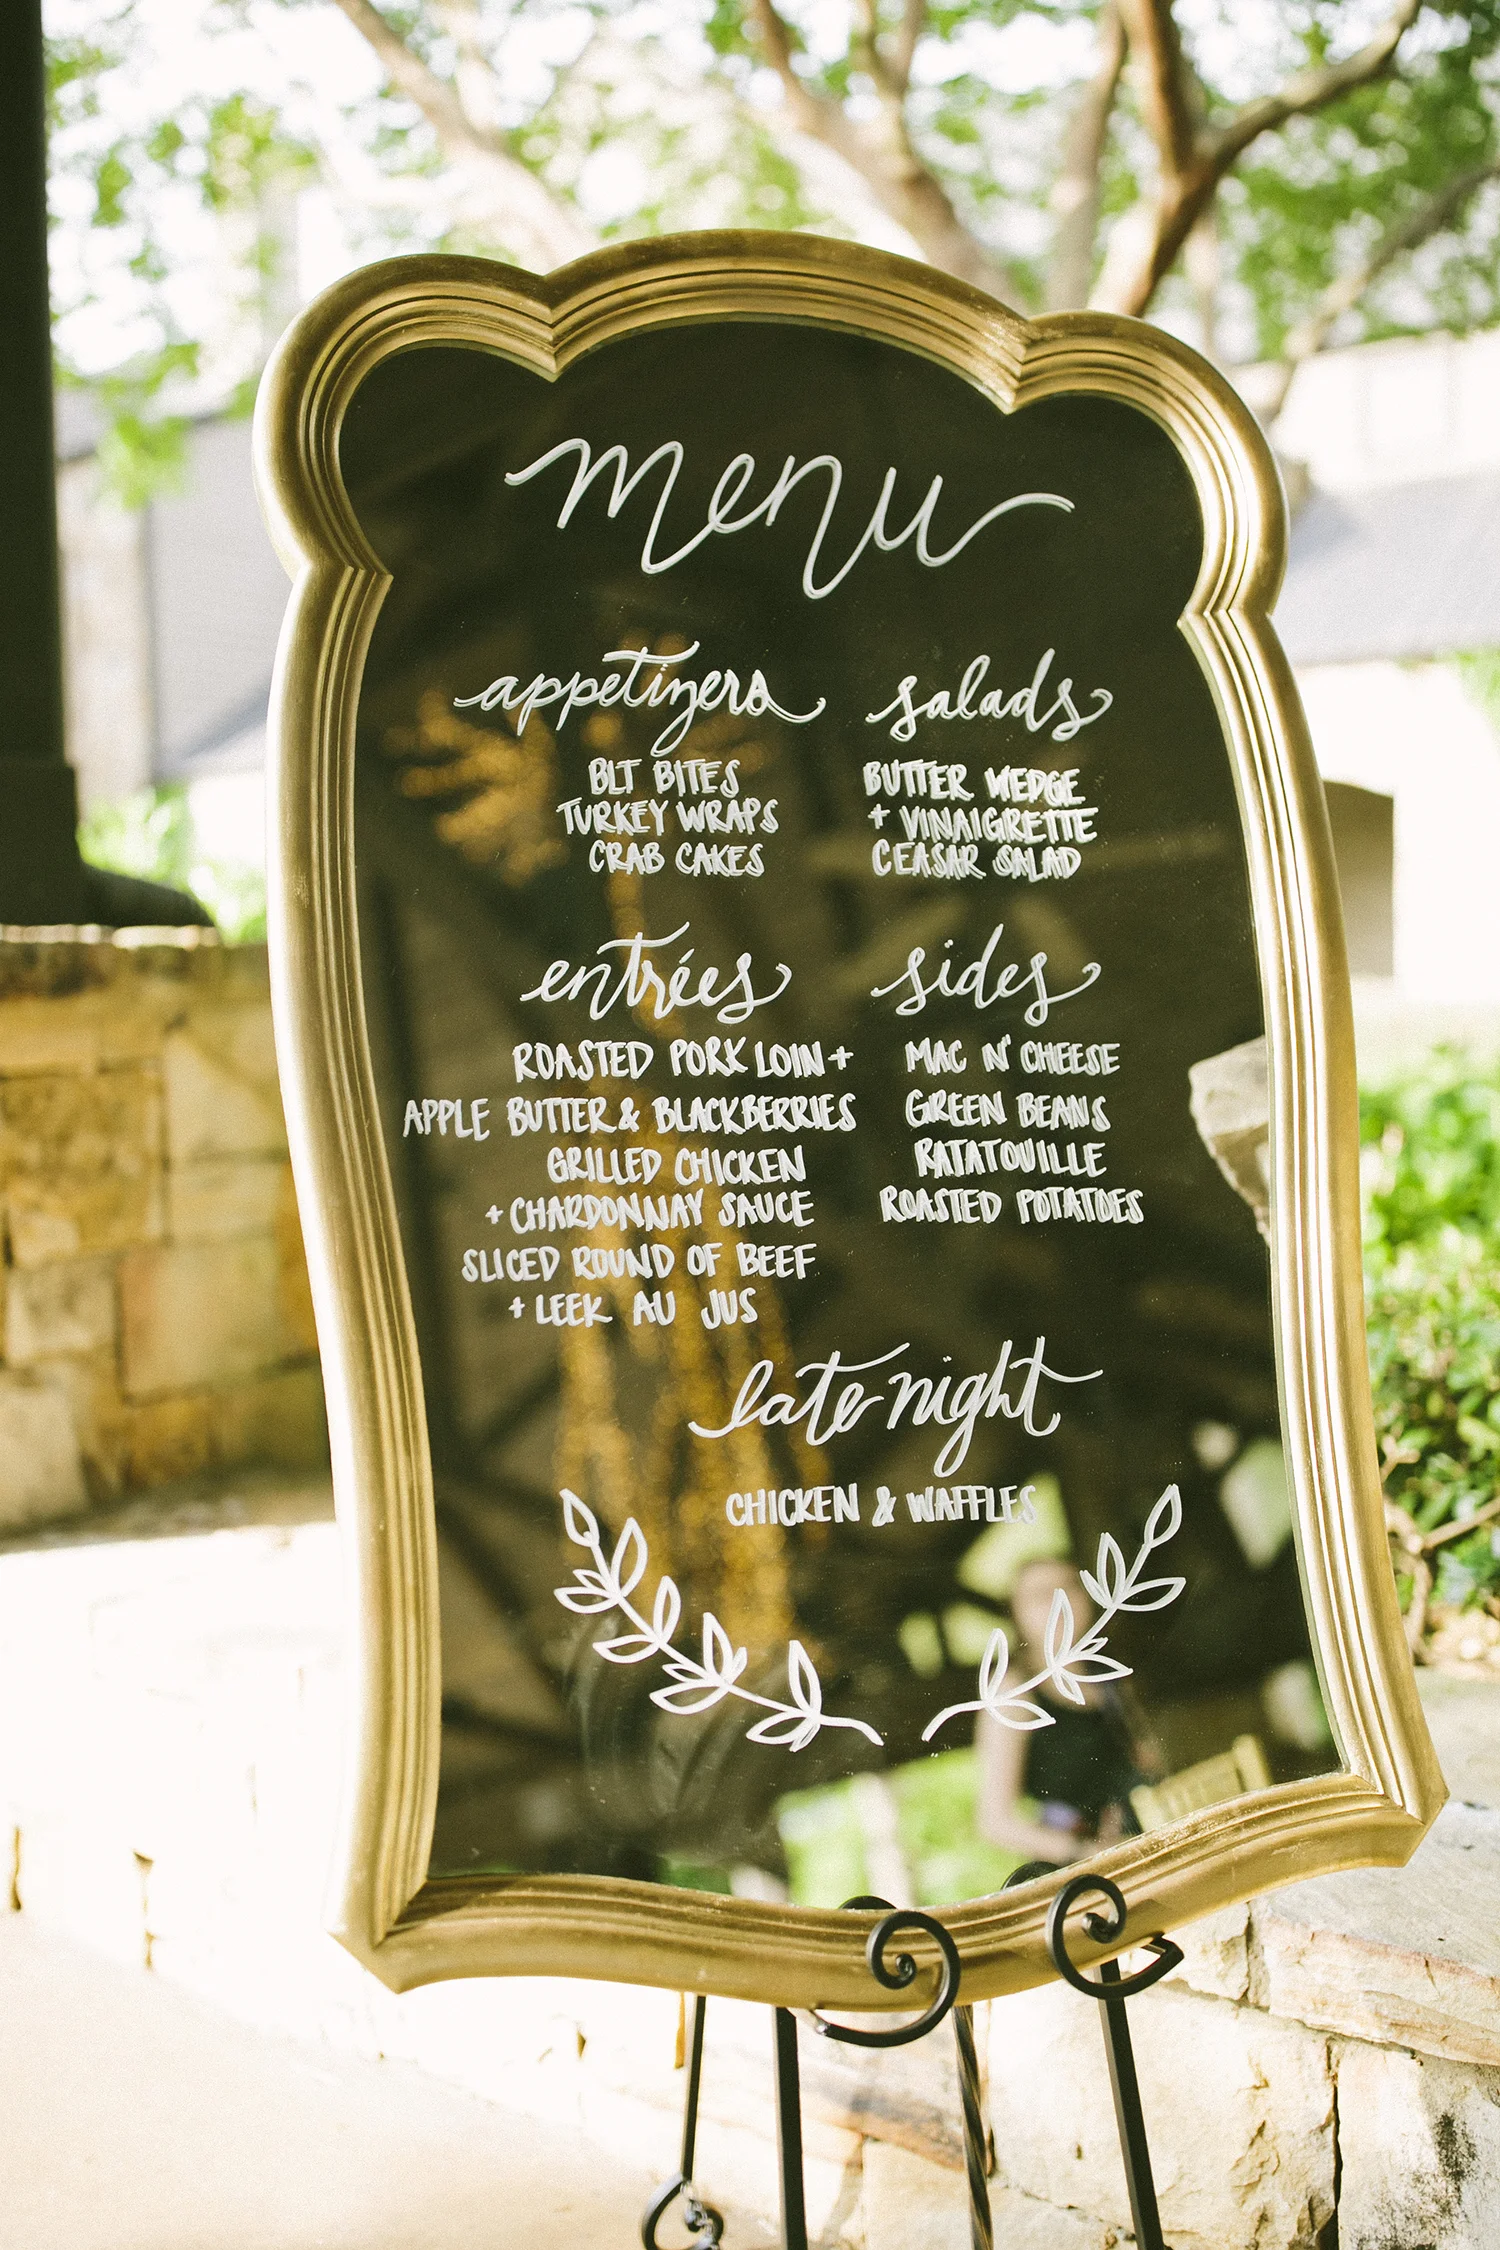 menu
appetizers
BLT BITES
TURKEY WRAPS
CRAB CAKES
salads
BUTTER WEDGE
+ VINAIGRETTE
CEASAR SALAD
entrées
ROASTED PORK LOIN +
APPLE BUTTER & BLACKBERRIES
GRILLED CHICKEN
+ CHARDONNAY SAUCE
SLICED ROUND OF BEEF
+ LEEK AU JUS
sides
MAC N' CHEESE
GREEN BEANS
RATATOUILLE
ROASTED POTATOES
late night
CHICKEN & WAFFLES